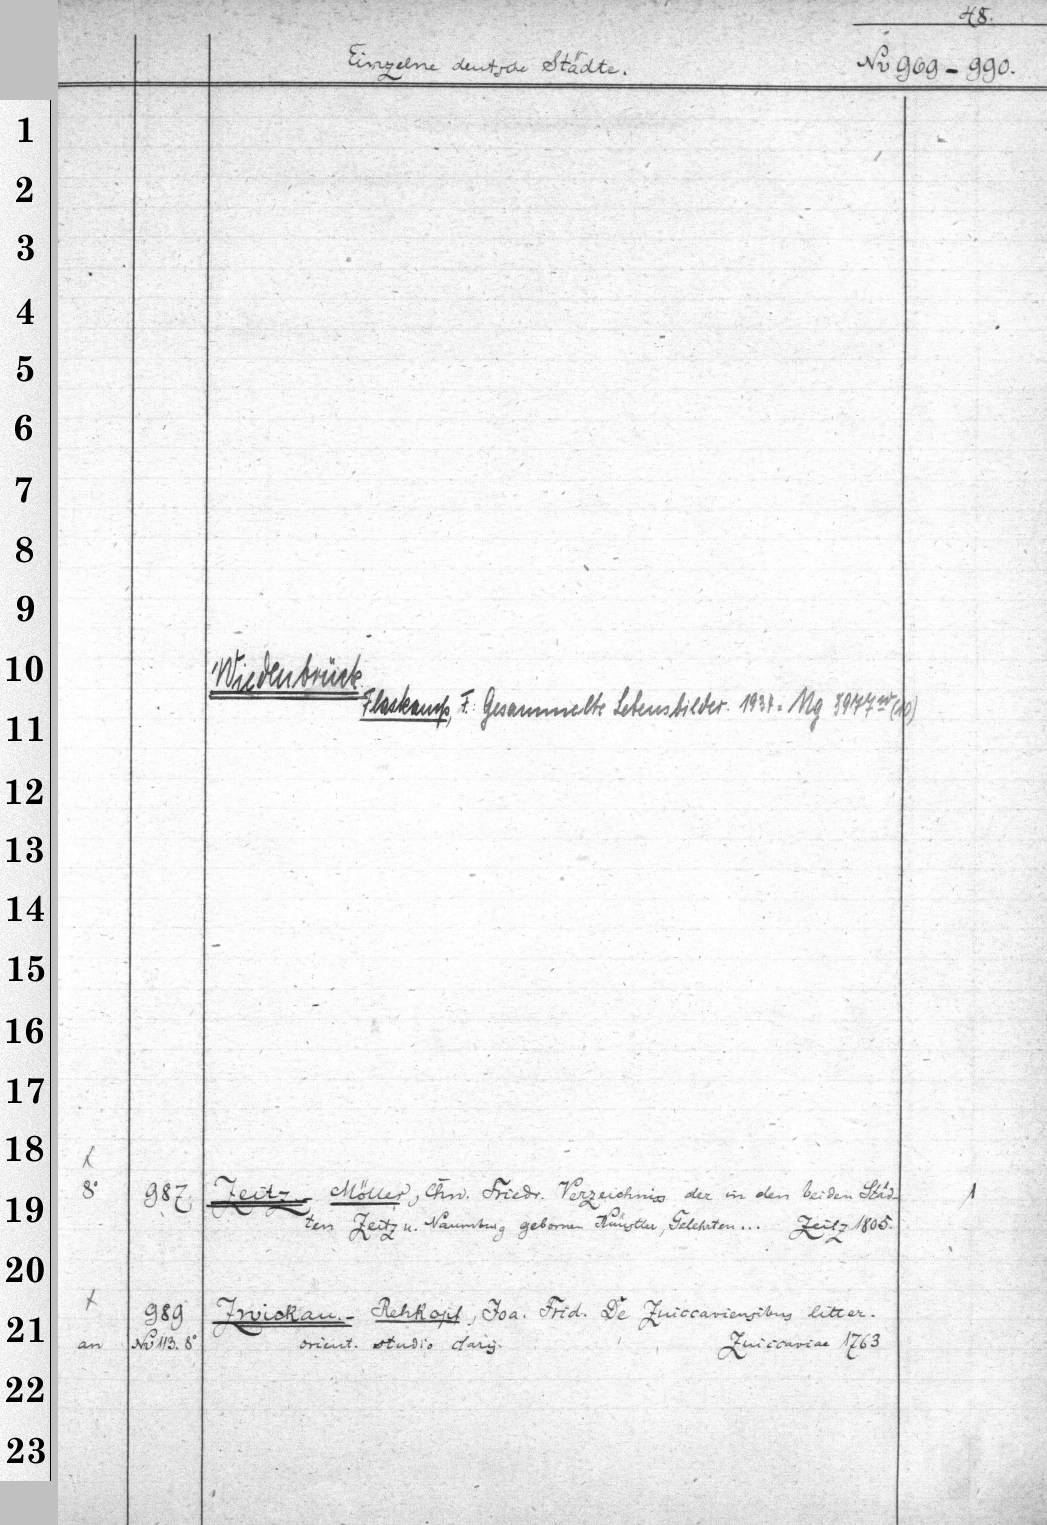 48.
Einzelne deutsche Städte. No 969 - 990.
1
2
3
4
5
6
7
8
9
10 Wiedenbrück
11 Flaskamp, F.: Gesammelte Lebensbilder. Mg (10)
12
13
14
15
16
17
18
x
19 8° 987 Zeitz.- Möller, Chn. Friedr. Verzeichniss der in den beiden Städ- 1
ten Zeitz u. Naumburg gebornen Künstler, Gelehrten... Zeitz 1805.
20
x 989 Zwickau.- Rehkopf, Joa. Frid. De Zuiccaviensibus litter.
21 an No 113. 8° orient. studio claris. Zuiccaviae 1763
22
23